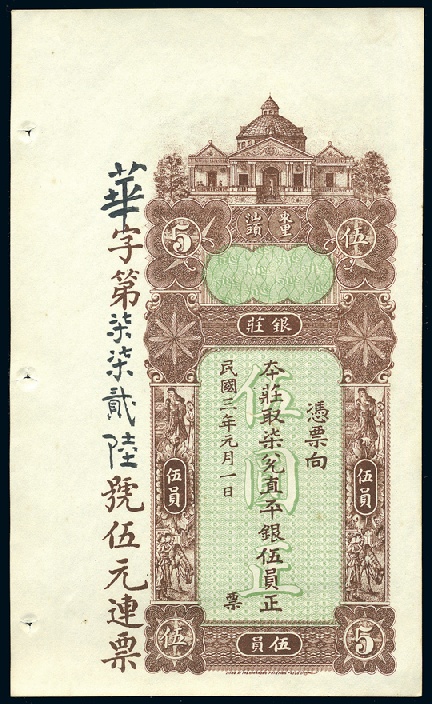 汕頭 東里
5 伍
銀莊
憑票向
本莊取柒兌直平銀伍員正
民國三年元月一日
票
伍圓正
伍員
伍員
伍 伍員 5
華字第柒柒貳陸號伍元連票